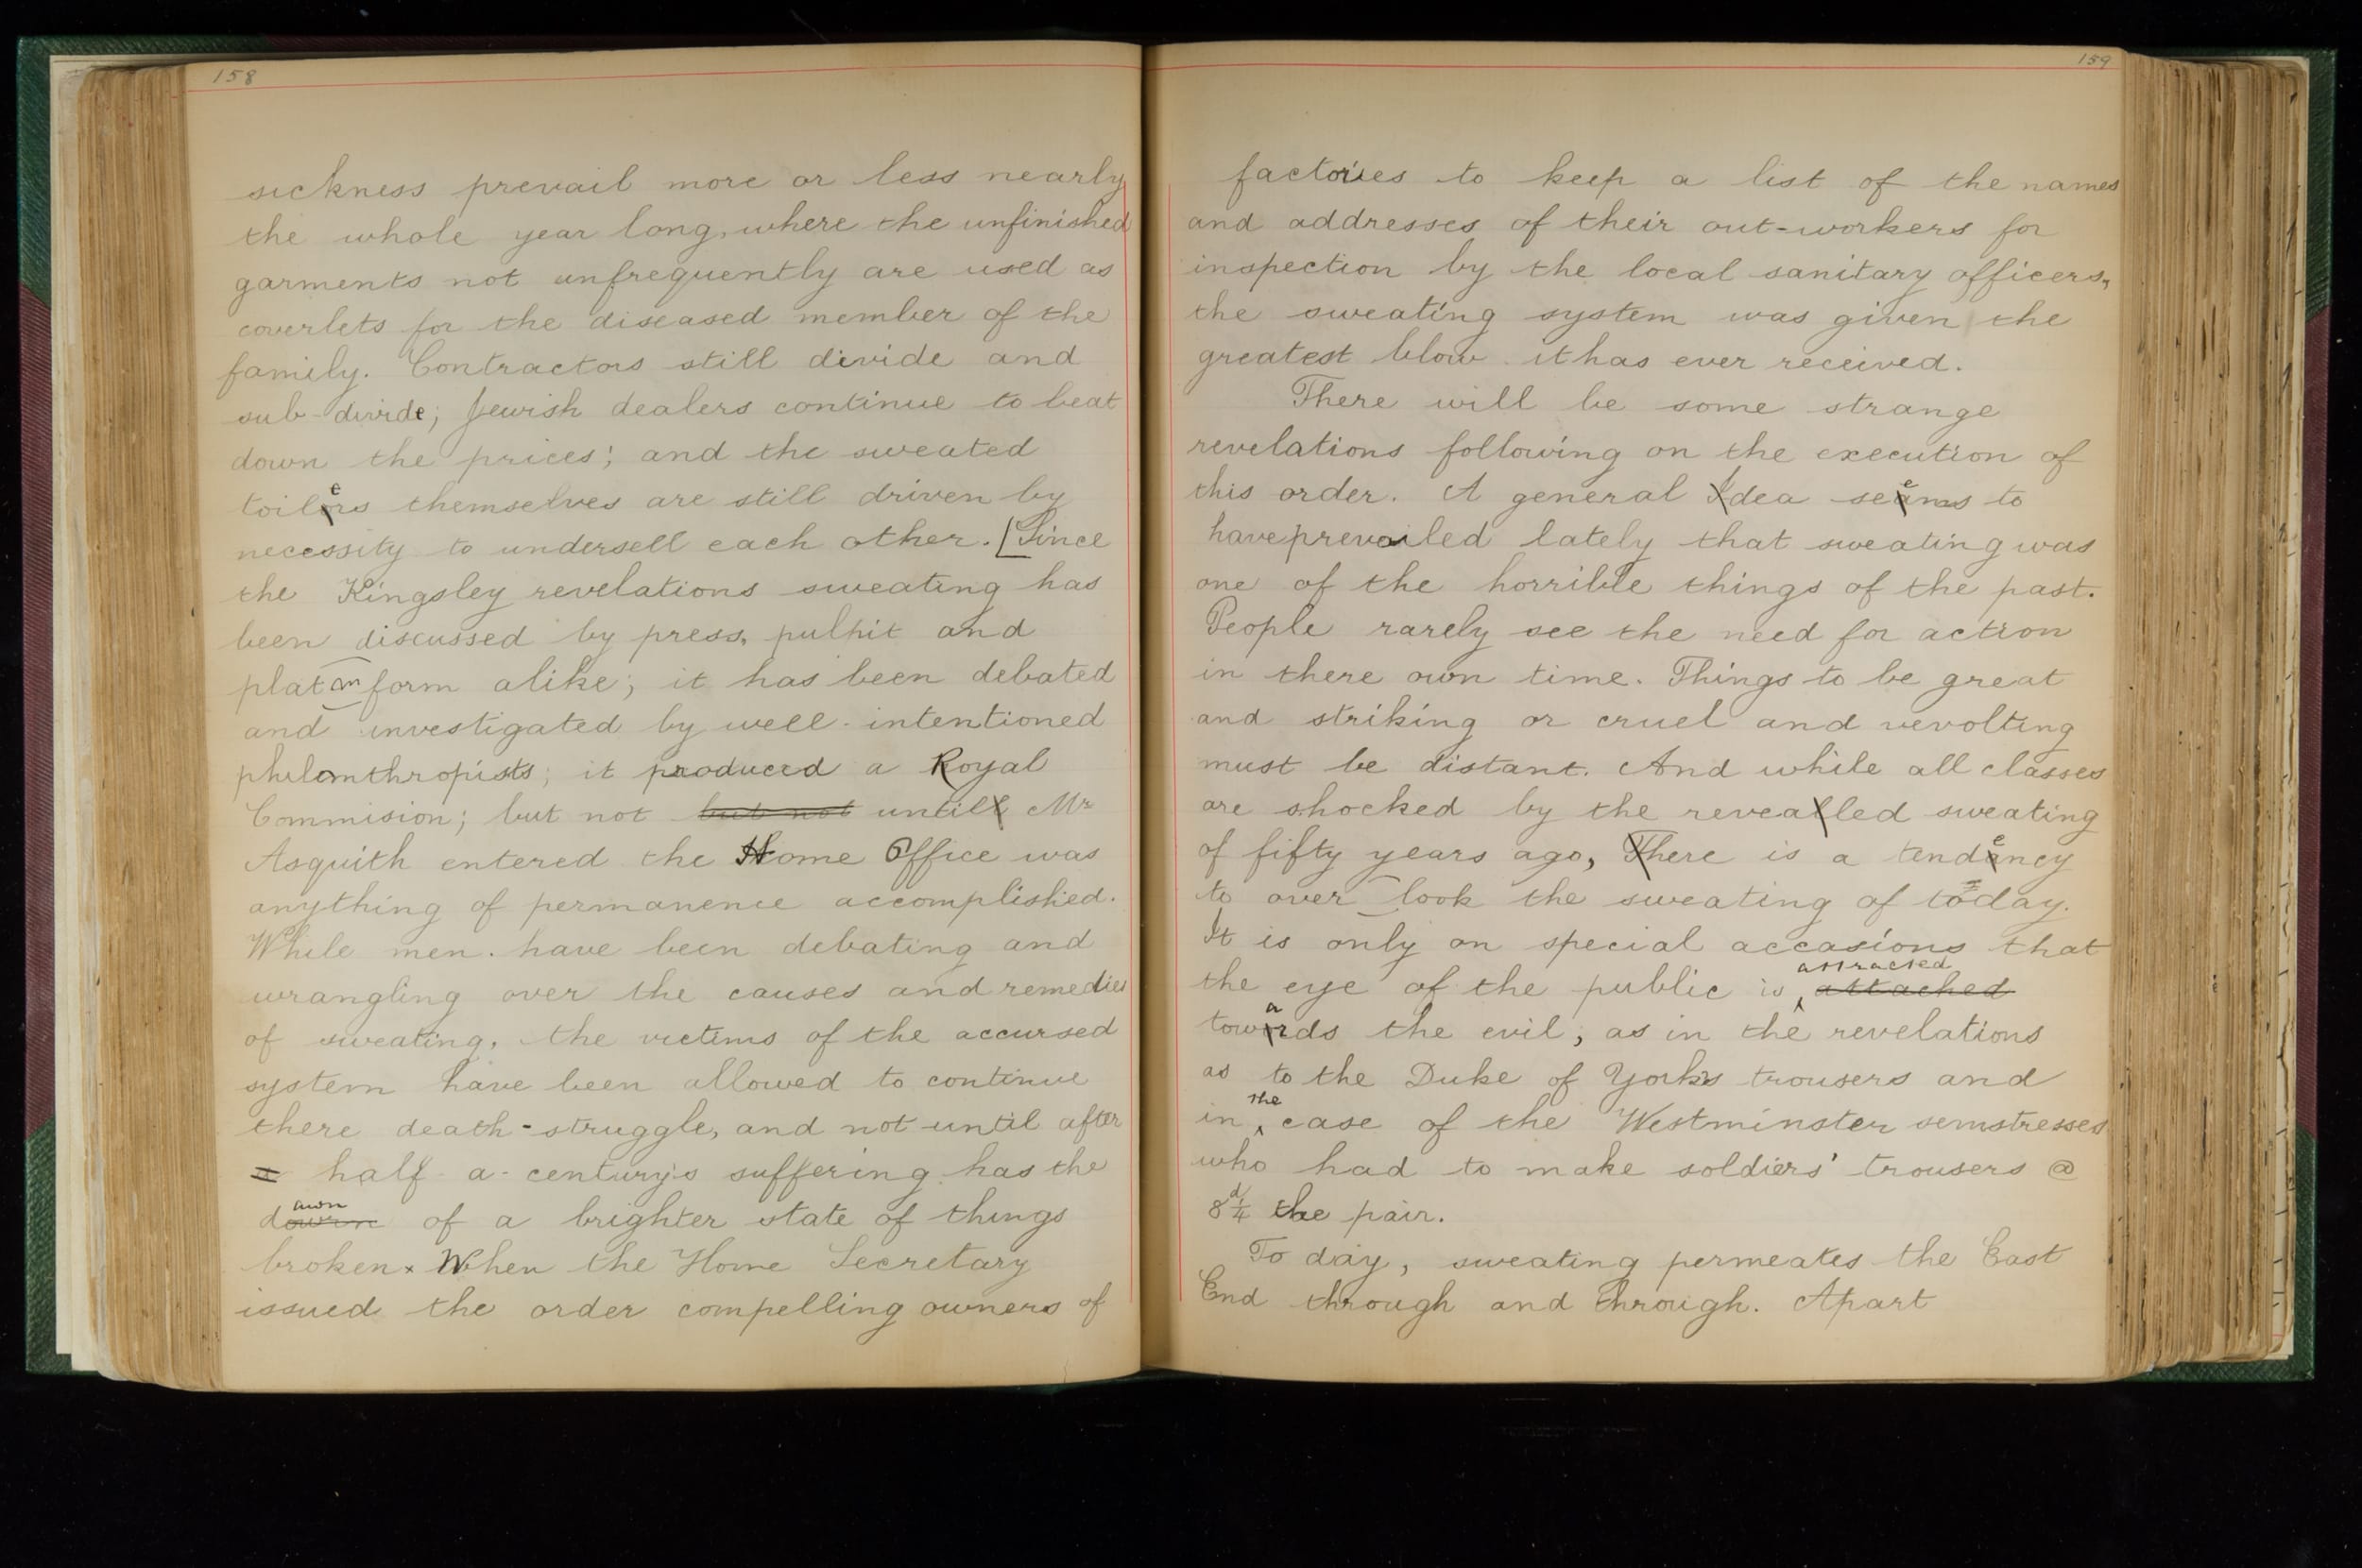 158
sickness prevail more or less nearly
the whole year long, where the unfinished
garments not unfrequently are used as
coverlets for the diseased member of the
family. Contractors still divide and
sub-divide; Jewish dealers continue to beat
down the prices; and the sweated
toilers themselves are still driven by
necessity to undersell each other. [Since
the Kingsley revelations sweating has
been discussed by press, pulpit and
platform alike; it has been debated
and investigated by well-intentioned
philanthropists; it produced a Royal
Commision; but not but not until Mr
Asquith entered the Home Office was
anything of permanence accomplished.
While men have been debating and
wrangling over the causes and remedies
of sweating, the victims of the accursed
system have been allowed to continue
there death-struggle, and not until after
a half a-century's suffering has the
dawn of a brighter state of things
broken. When the Home Secretary
issued the order compelling owners of
159
factories to keep a list of the names
and addresses of their out-workers for
inspection by the local sanitary officers,
the sweating system was given the
greatest blow it has ever received.
There will be some strange
revelations following on the execution of
this order. A general Idea seems to
have prevailed lately that sweating was
one of the horrible things of the past.
People rarely see the need for action
in there own time. Things to be great
and striking or cruel and revolting
must be distant. And while all classes
are shocked by the revealled sweating
of fifty years ago, There is a tendency
to over look the sweating of to=day.
It is only on special accasions that
the eye of the public is attracted attached
towards the evil, as in the revelations
as to the Duke of York's trousers and
in the case of the Westminster semstresses
who had to make soldiers' trousers @
8¼d the pair.
To day, sweating permeates the East
End through and through. Apart